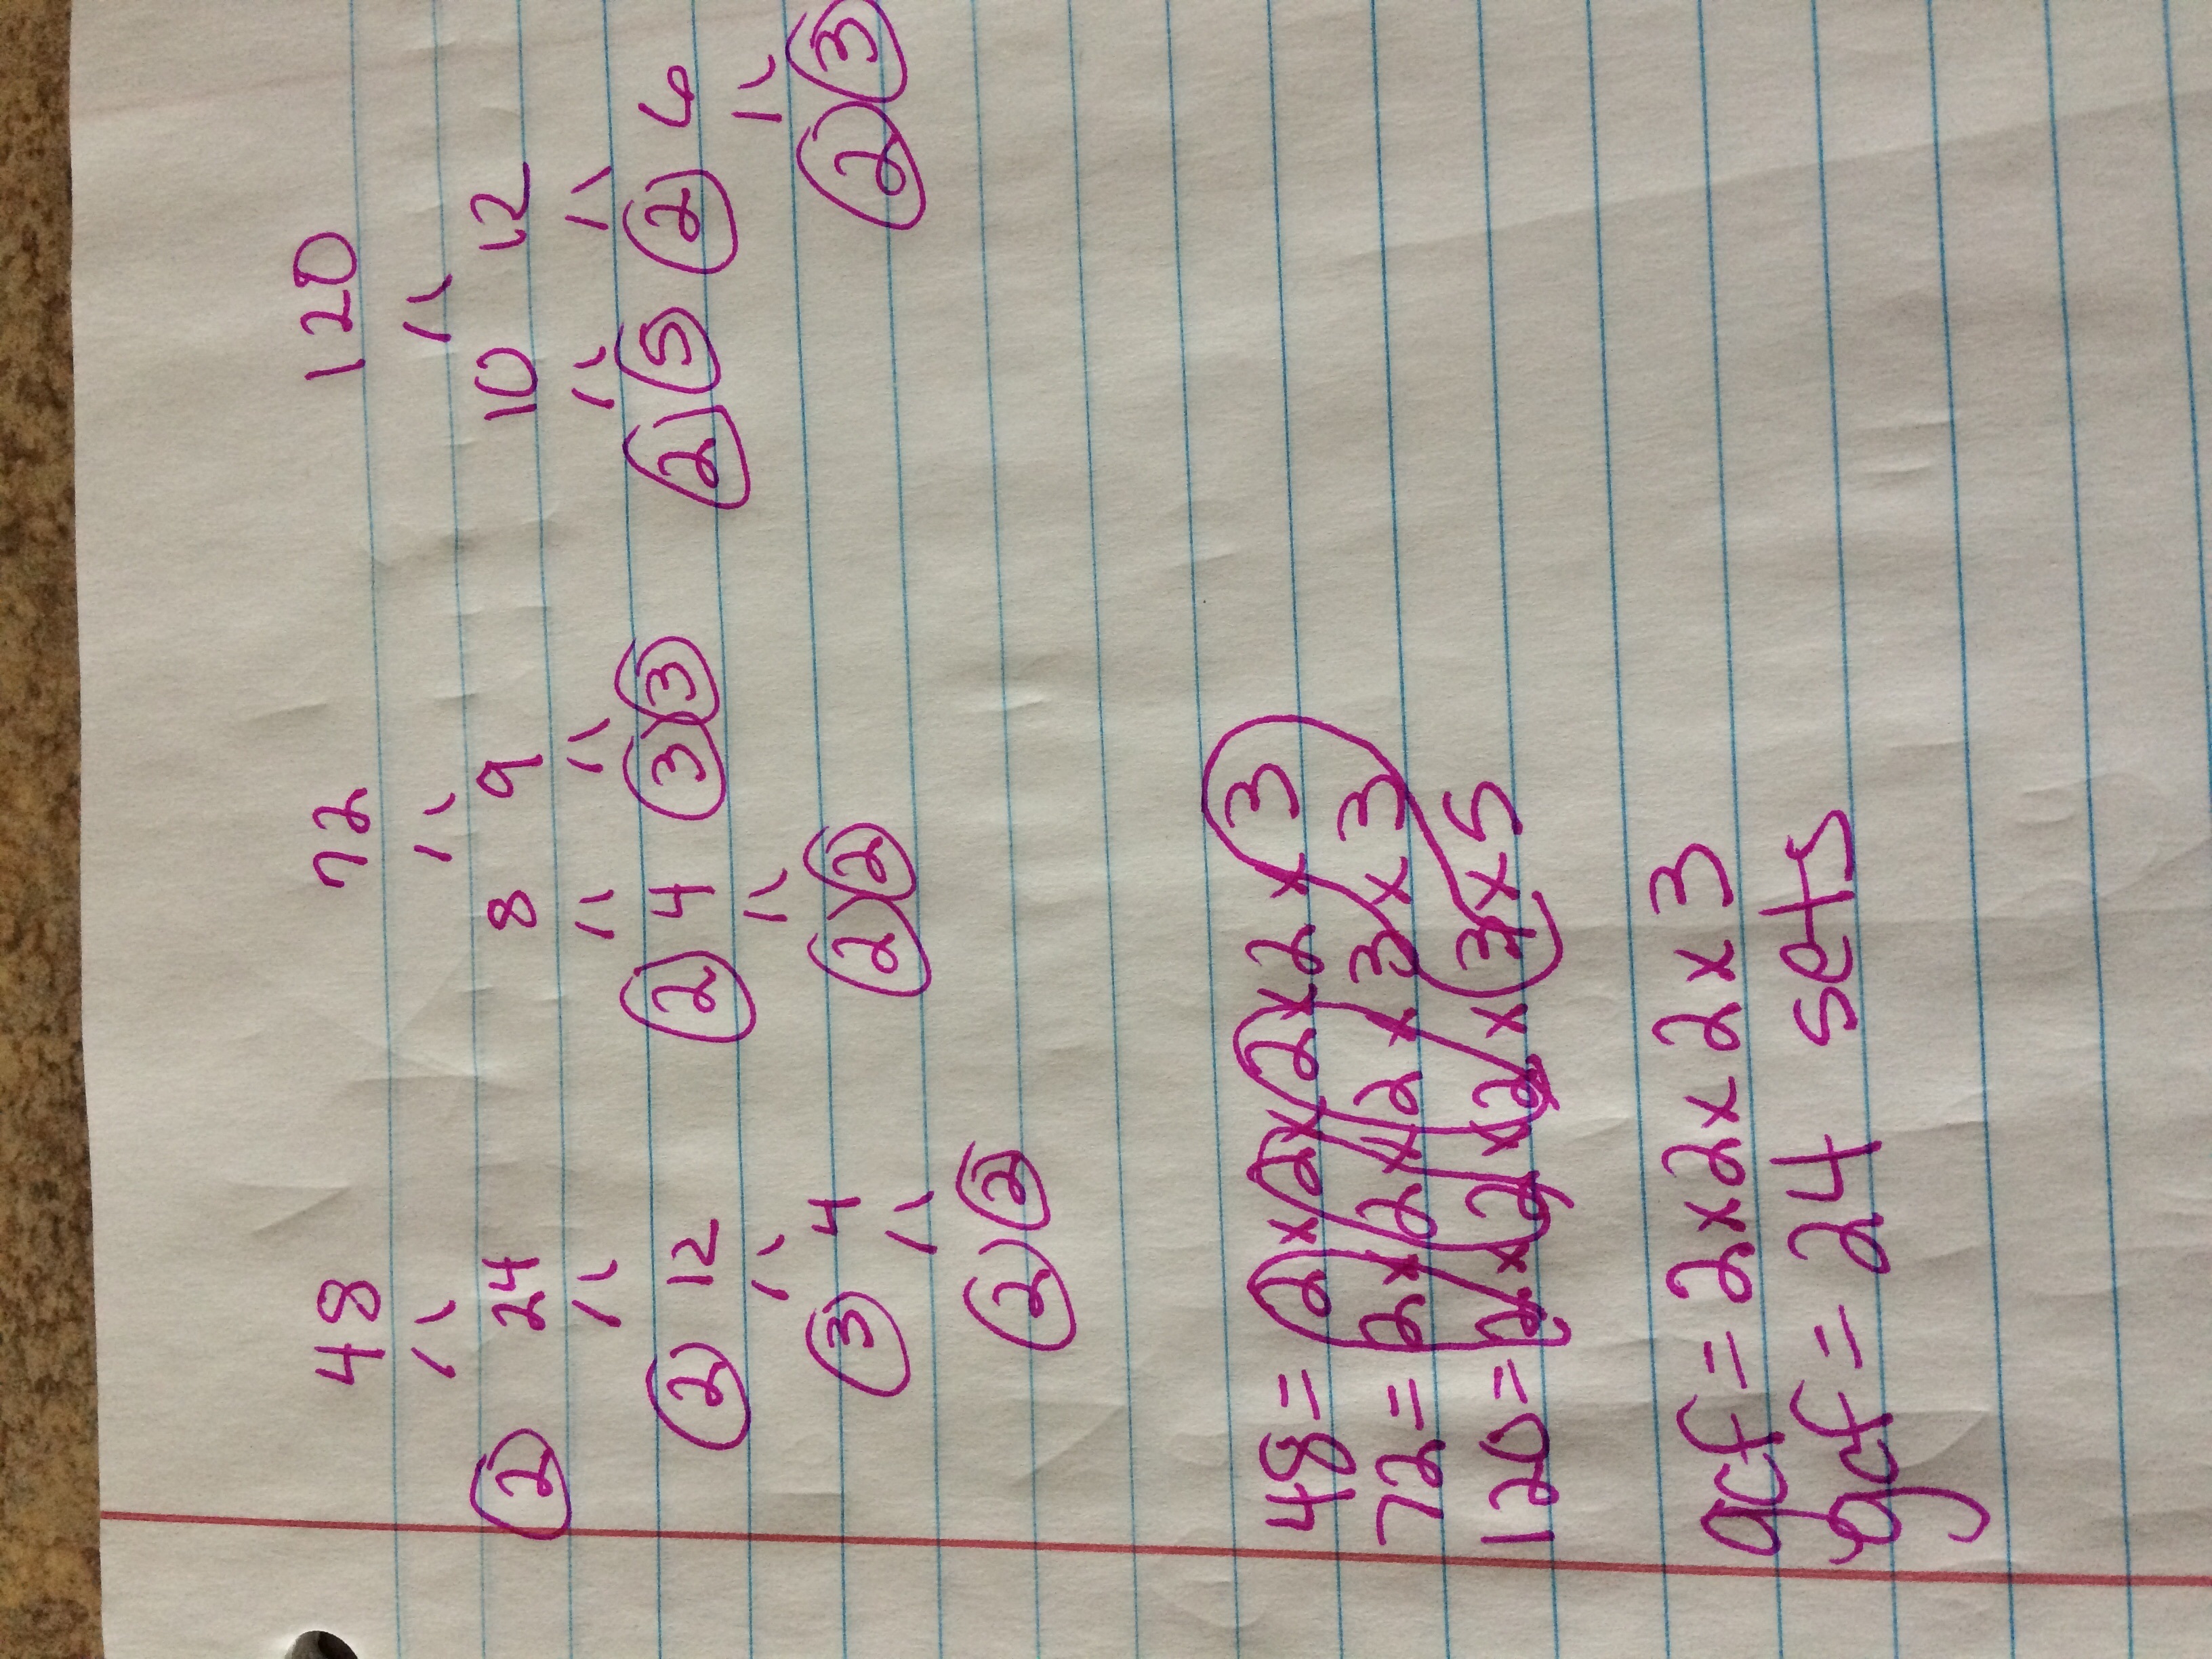 48 72 120
2 24 8 9 10 12
2 12 2 4 3 3 2 5 2 6
3 4 2 2 2 3
2 2
48= 2×2×2×2×3
72= 2×2×2×3×3
120= 2×2×2×3×5
gcf= 2×2×2×3
gcf= 24 sets